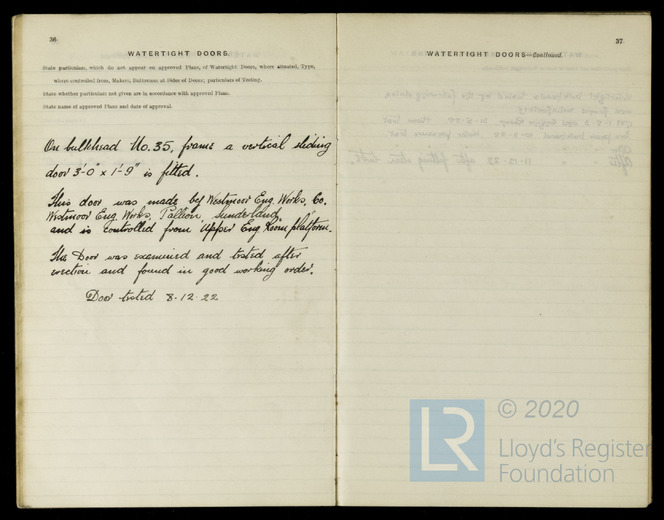 36
WATERTIGHT DOORS.
State particulars, which do not appear on approved Plans, of Watertight Doors, where situated, Type,
where controlled from, Makers, Buttresses at Sides of Doors; particulars of Testing.
State whether particulars not given are in accordance with approved Plans.
State name of approved Plans and date of approval.
On bulkhead No. 35, frame a vertical sliding
door 3'-0" x 1'-9" is fitted.
This door was made by Westmoor Eng. Works, Co.
Westmoor Eng. Works, Pallion, Sunderland,
and is controlled from Upper Eng. Room platform.
This Door was examined and tested after
erection and found in good working order.
Door tested 8.12.22
37
WATERTIGHT DOORS—Continued.
LR
© 2020
Lloyd's Register
Foundation